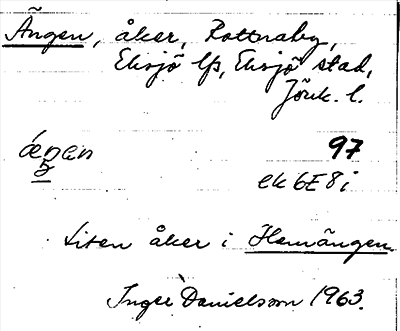 Ängen, åker, Rottnaby,
Eksjö lfs, Eksjö stad,
Jönk. l.
97
ek 6E8i
Liten åker i Hemängen.
Inger Danielsson 1963.